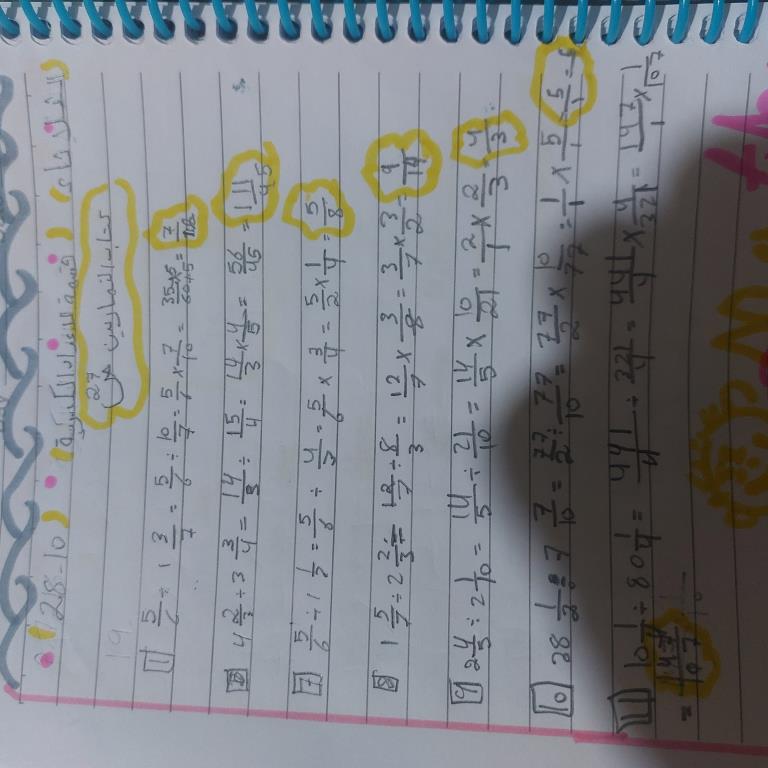 الثلاثاء) (قسمة الأعداد الكسرية) (28-10
كتاب التمارين ص 27
11 5/6 ÷ 1 3/7 = 5/6 ÷ 10/7 = 5/6 × 7/10 = 35÷5/60÷5 = 7/12
4 2/3 ÷ 3 3/4 = 14/3 ÷ 15/4 = 14/3 × 4/5 = 56/45 = 1 11/45
7 5/6 ÷ 1 1/3 = 5/6 ÷ 4/3 = 5/6 × 3/4 = 5/2 × 1/4 = 5/8
8 1 5/7 ÷ 2 2/3 = 12/7 ÷ 8/3 = 12/7 × 3/8 = 3/7 × 3/2 = 9/14
9 2 4/5 ÷ 2 1/10 = 14/5 ÷ 21/10 = 14/5 × 10/21 = 2/1 × 2/3 = 4/3
10 28 1/2 ÷ 7 7/10 = 77/2 ÷ 77/10 = 77/2 × 10/77 = 1/1 × 5/1 = 5
11 10 1/4 ÷ 80 1/4 = 441/4 ÷ 321/4 = 441/4 × 4/321 = 147/1 × 1/107
= 147/107